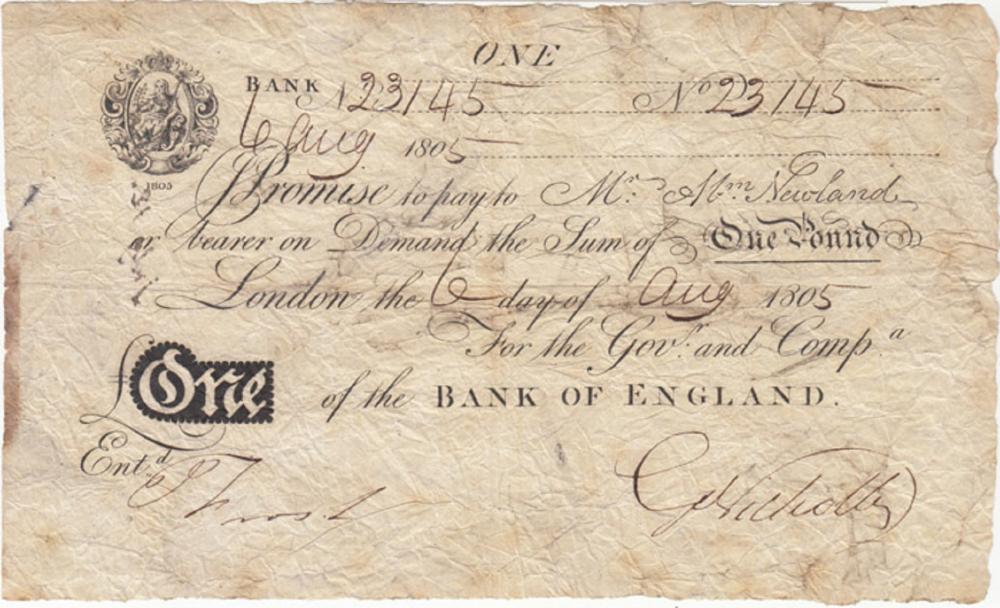 ONE
BANK No 23145 No 23145
6 Aug 1805
1805
I Promise to pay to Mr. Abm. Newland
or bearer on Demand the Sum of One Pound
London the 6 day of Aug 1805
For the Govr. and Compa.
£One of the BANK OF ENGLAND.
Entd. J Frost